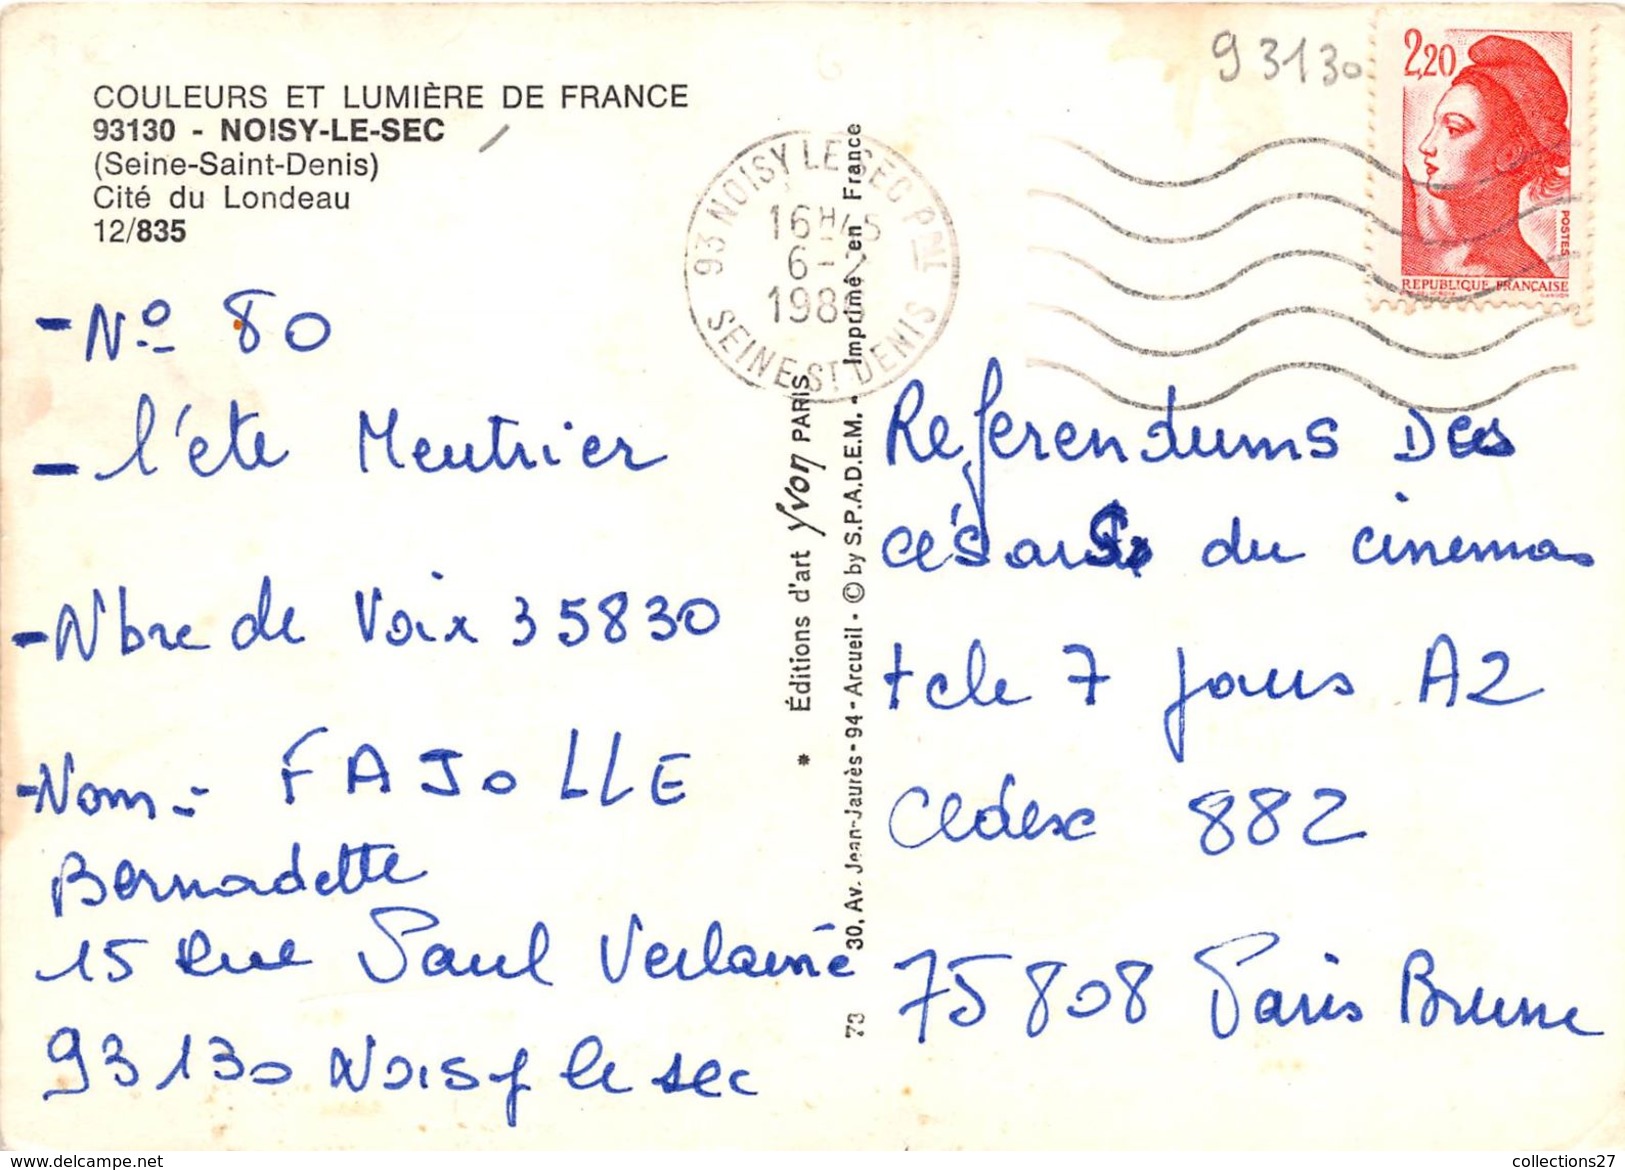 COULEURS ET LUMIÈRE DE FRANCE
93130 - NOISY-LE-SEC
(Seine-Saint-Denis)
Cité du Londeau
12/835
93130
2,20
POSTES
REPUBLIQUE FRANÇAISE
93 NOISY LE SEC PAL
16H45
6-2
198
SEINE ST DENIS
- No 80
- l'éte Meutrier
- Nbre de Voix 35830
- Nom :- FAJOLLE
Bernadette
15 rue Paul Verlaine
93130 Noisy le sec
* Éditions d'art Yvon PARIS
73 30, Av. Jean-Jaurès - 94 - Arcueil • © by S.P.A.D.E.M. - Imprimé en France
Referendums Des
césars du cinemas
tele 7 jours A2
Cedex 882
75808 Paris Brune
collections27